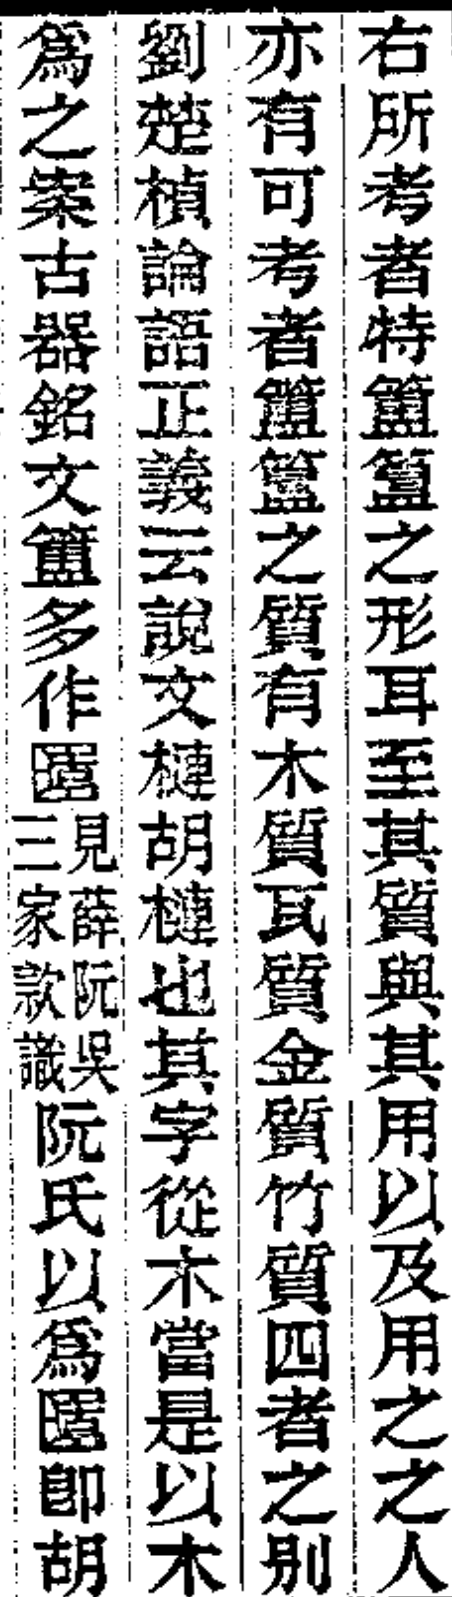 右所考者特簠簋之形耳至其質與其用以及用之之人
亦有可考者簠簋之質有木質瓦質金質竹質四者之別
劉楚楨論語正義云說文槤胡槤也其字從木當是以木
爲之案古器銘文簠多作𠥗見薛阮吳三家款識阮氏以爲𠥗卽胡